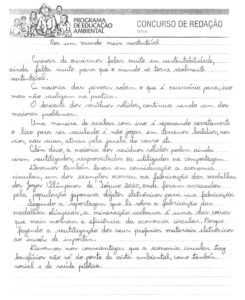 PROGRAMA
DE EDUCAÇÃO
AMBIENTAL
CONCURSO DE REDAÇÃO
Por um mundo mais sustentável
Apesar de ouvirmos falar muito em sustentabilidade,
ainda falta muito para que o mundo se torne realmente
sustentável.
A maioria das pessoas sabem o que é necessário para isso
mas não realizam na prática.
O descarte dos resíduos sólidos, continua sendo um dos
maiores problemas.
Uma maneira de acabar com isso é separando corretamente
o lixo para ser reciclado e não jogar em terrenos baldios, nos
rios, nas ruas, atirar pela janela do carro etc.
Além disso, a maioria dos resíduos sólidos podem ainda
virem reutilizados, reaproveitados ou utilizados na compostagem.
Devemos também levar em consideração a economia
circular, um dos exemplos ocorreu na fabricação das medalhas
dos Jogos Olímpicos de Tóquio 2020, onde foram arrecadados
pela população japonesa objetos eletrônicos para sua fabricação.
Segundo a reportagem que li sobre a fabricação das
medalhas olímpicas, a mineração urbana é uma das coisas
que mais mostram a eficiência da economia circular. Porque
fazendo a reutilização dos seus próprios materiais eletrônicos
ao invés de importar.
Devemos nos conscientizar que a economia circular traz
benefícios não só do ponto de vista ambiental, como também
social e de saúde pública.